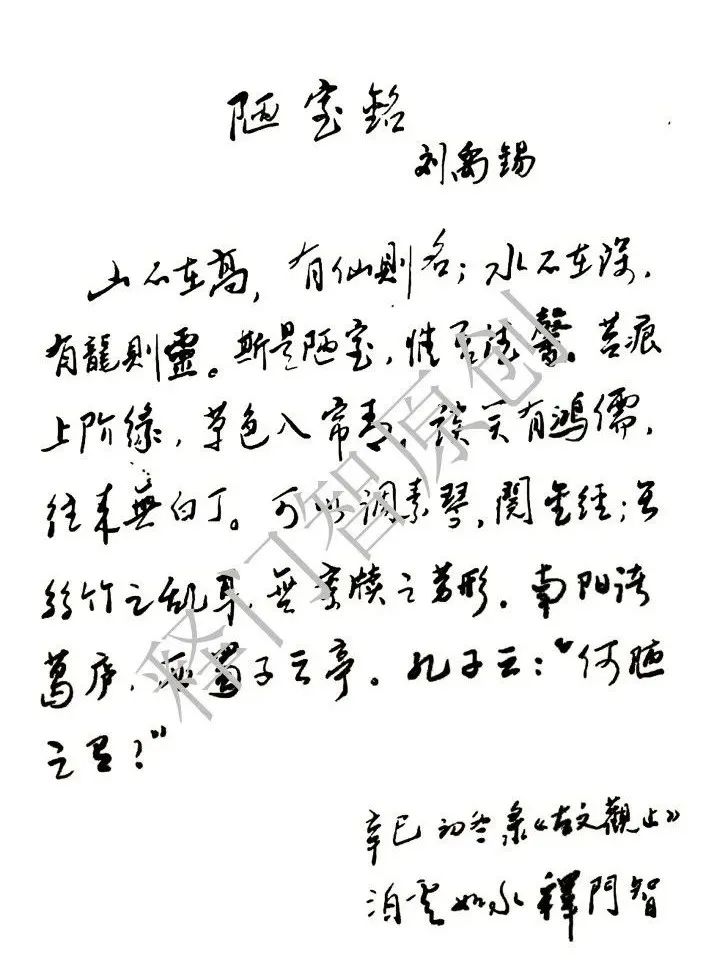 陋室銘
刘禹锡
山不在高，有仙則名；水不在深，
有龍則靈。斯是陋室，惟吾德馨。苔痕
上阶緑，草色入帘青。談笑有鴻儒，
往来無白丁。可以调素琴，閱金經；無
絲竹之乱耳，無案牍之劳形。南阳诸
葛庐，西蜀子云亭。孔子云：“何陋
之有？”
辛巳初冬录《古文觀止》
泊雲如水 釋門智
释门智原创